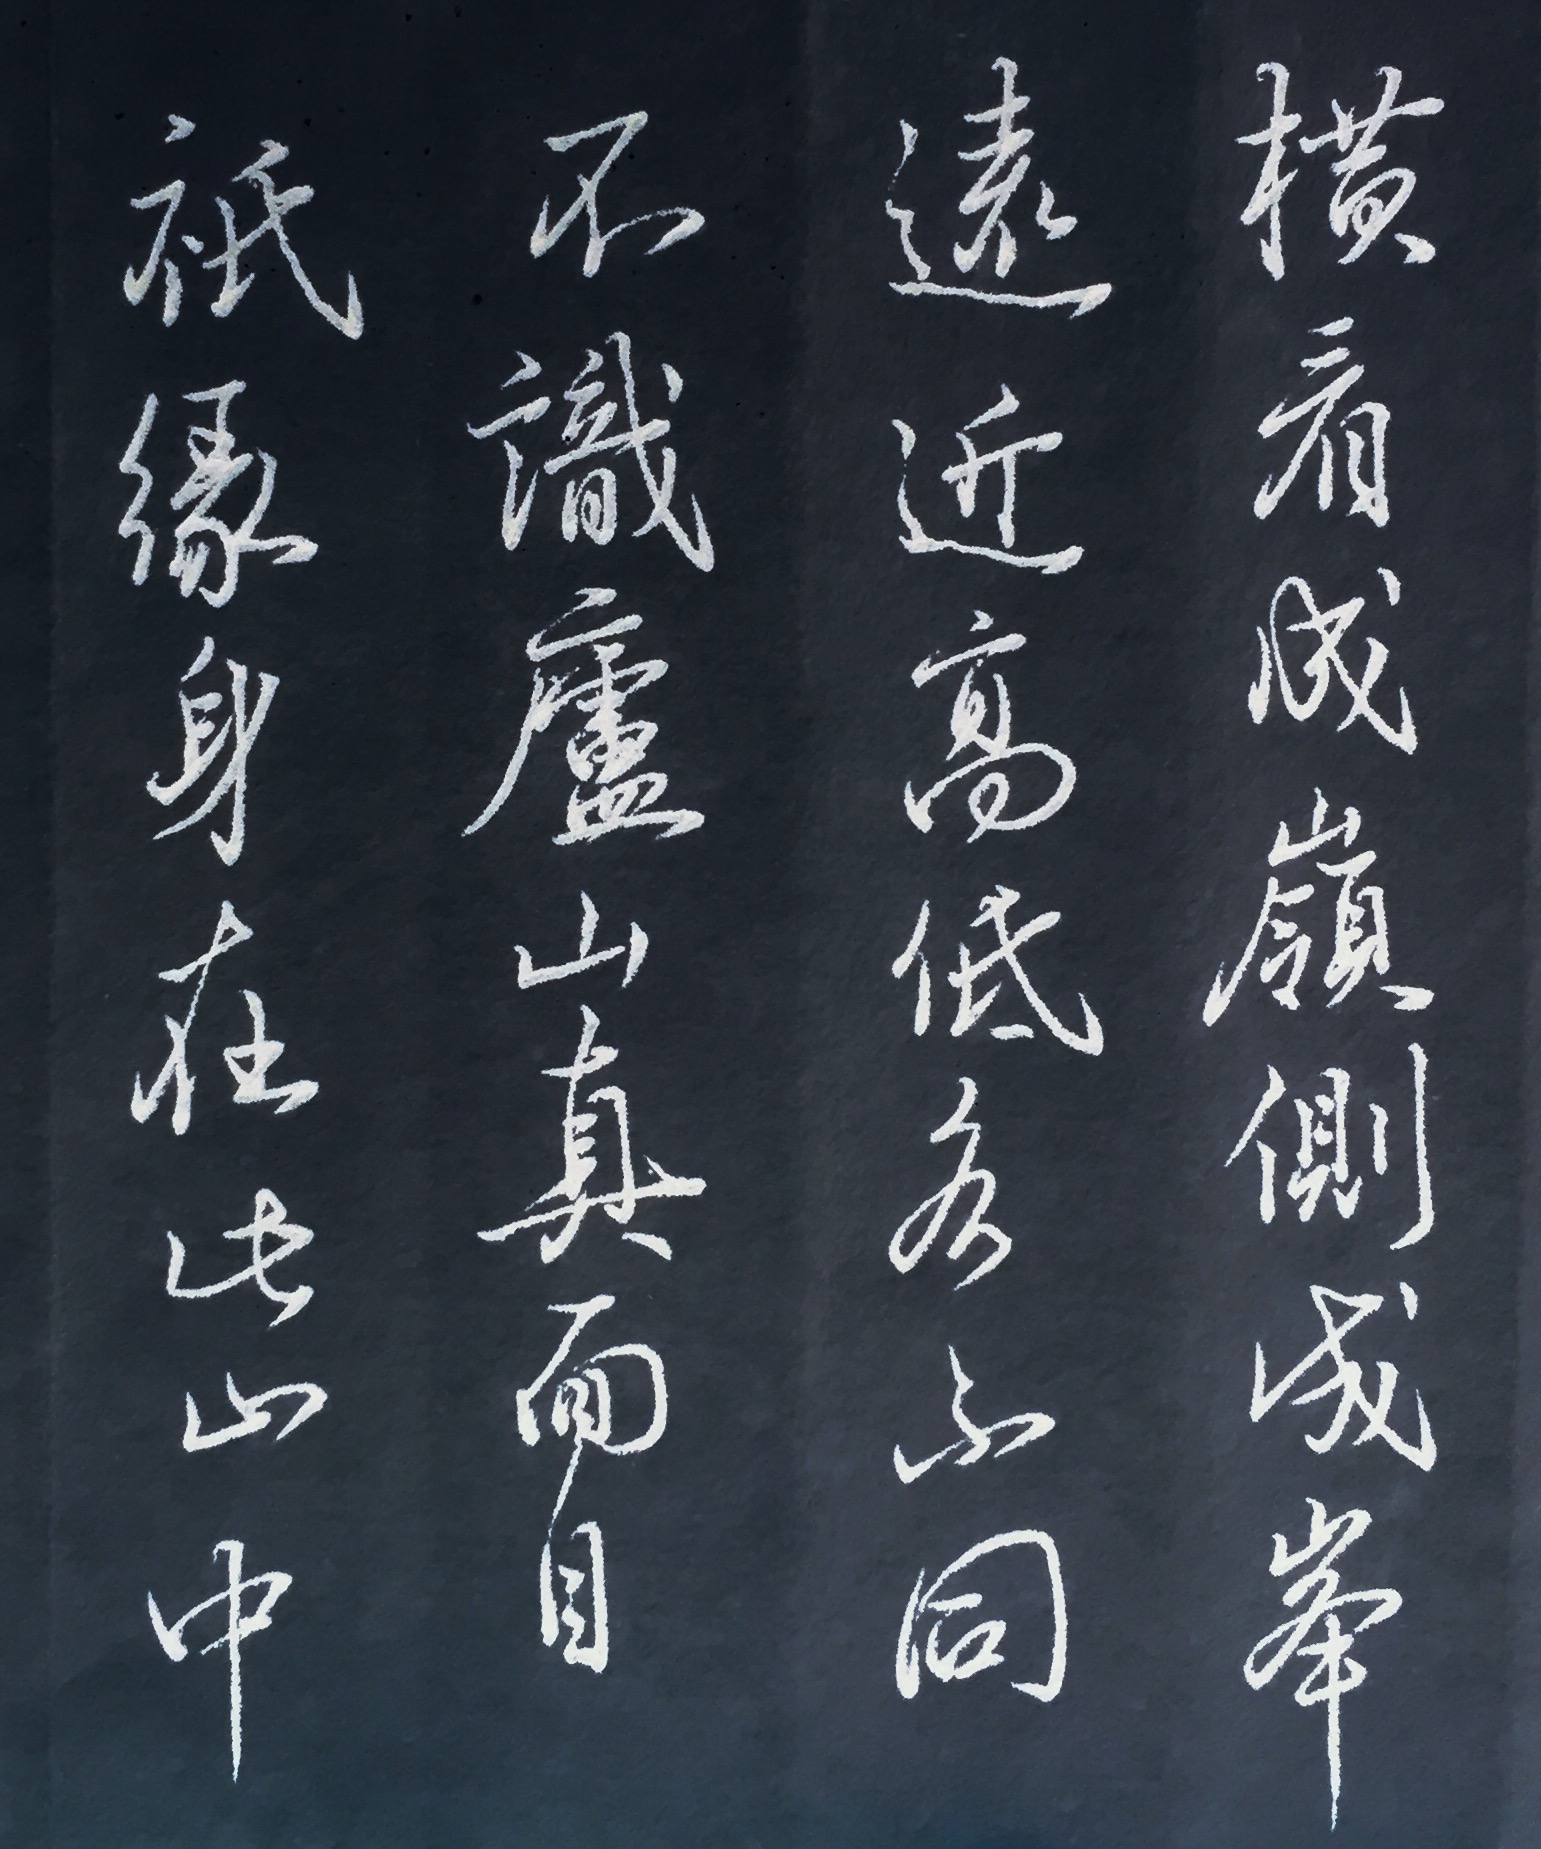 橫看成嶺側成峯
遠近高低各不同
不識廬山真面目
祇緣身在此山中